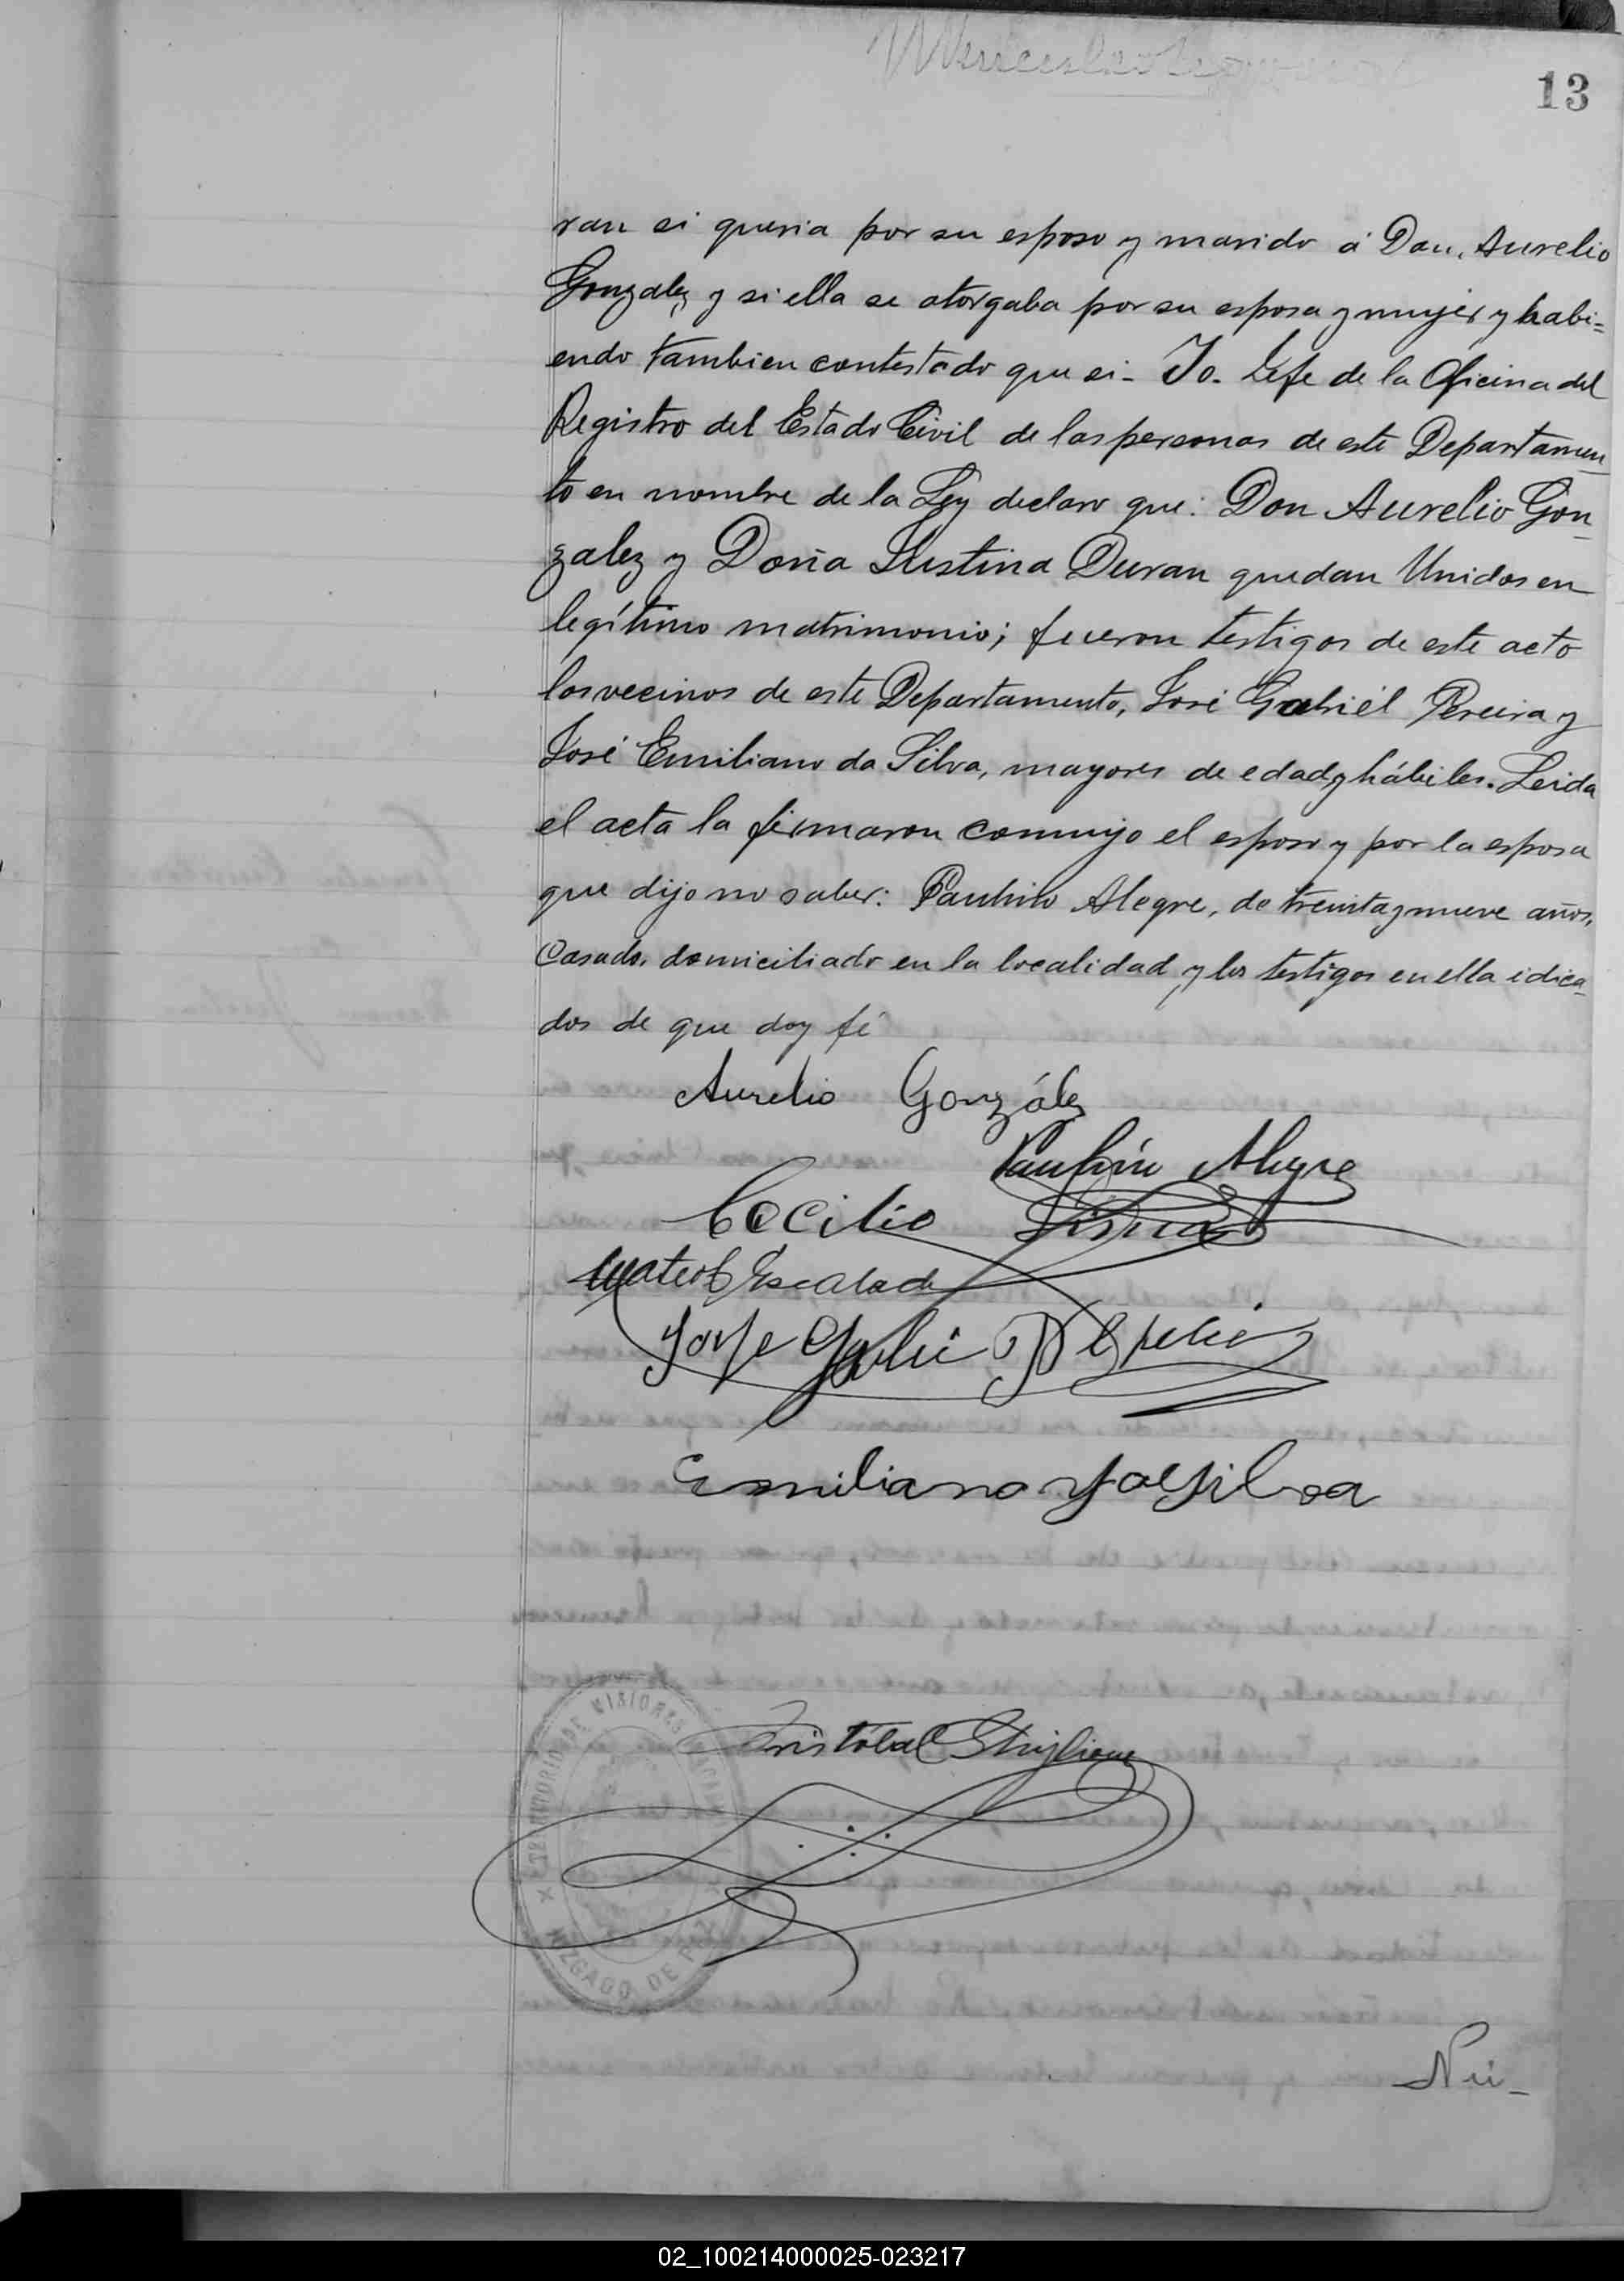 13
ran si queria por su esposo y marido á Don, Aurelio
Gonzalez y si ella se otorgaba por su esposa y mujer y habi=
endo tambien contestado que si - Yo. Jefe de la Oficina del
Registro del Estado Civil de las personas de este Departamen_
to en nombre de la Ley declaro que: Don Aurelio Gon_
zalez y Doña Justina Duran quedan Unidos en
legítimo matrimonio; fueron testigos de este acto
los vecinos de este Departamento, José Gabriél Pereira y
José Emiliano da Silva, mayores de edad y hábiles. Leida
el acta la firmaron conmigo el esposo y por la esposa
que dijo no saber: Paulino Alegre, de treinta y nueve años,
Casado, domiciliado en la localidad y los testigos en ella idica_
dos de que doy fé
Aurelio González
Paulino Alegre
Cecilio
Mateo Escalad
Jose
Emiliano da Silva
Cristóbal
TERRITORIO DE MISIONES
JUZGADO DE PAZ
Nú_
02_100214000025-023217